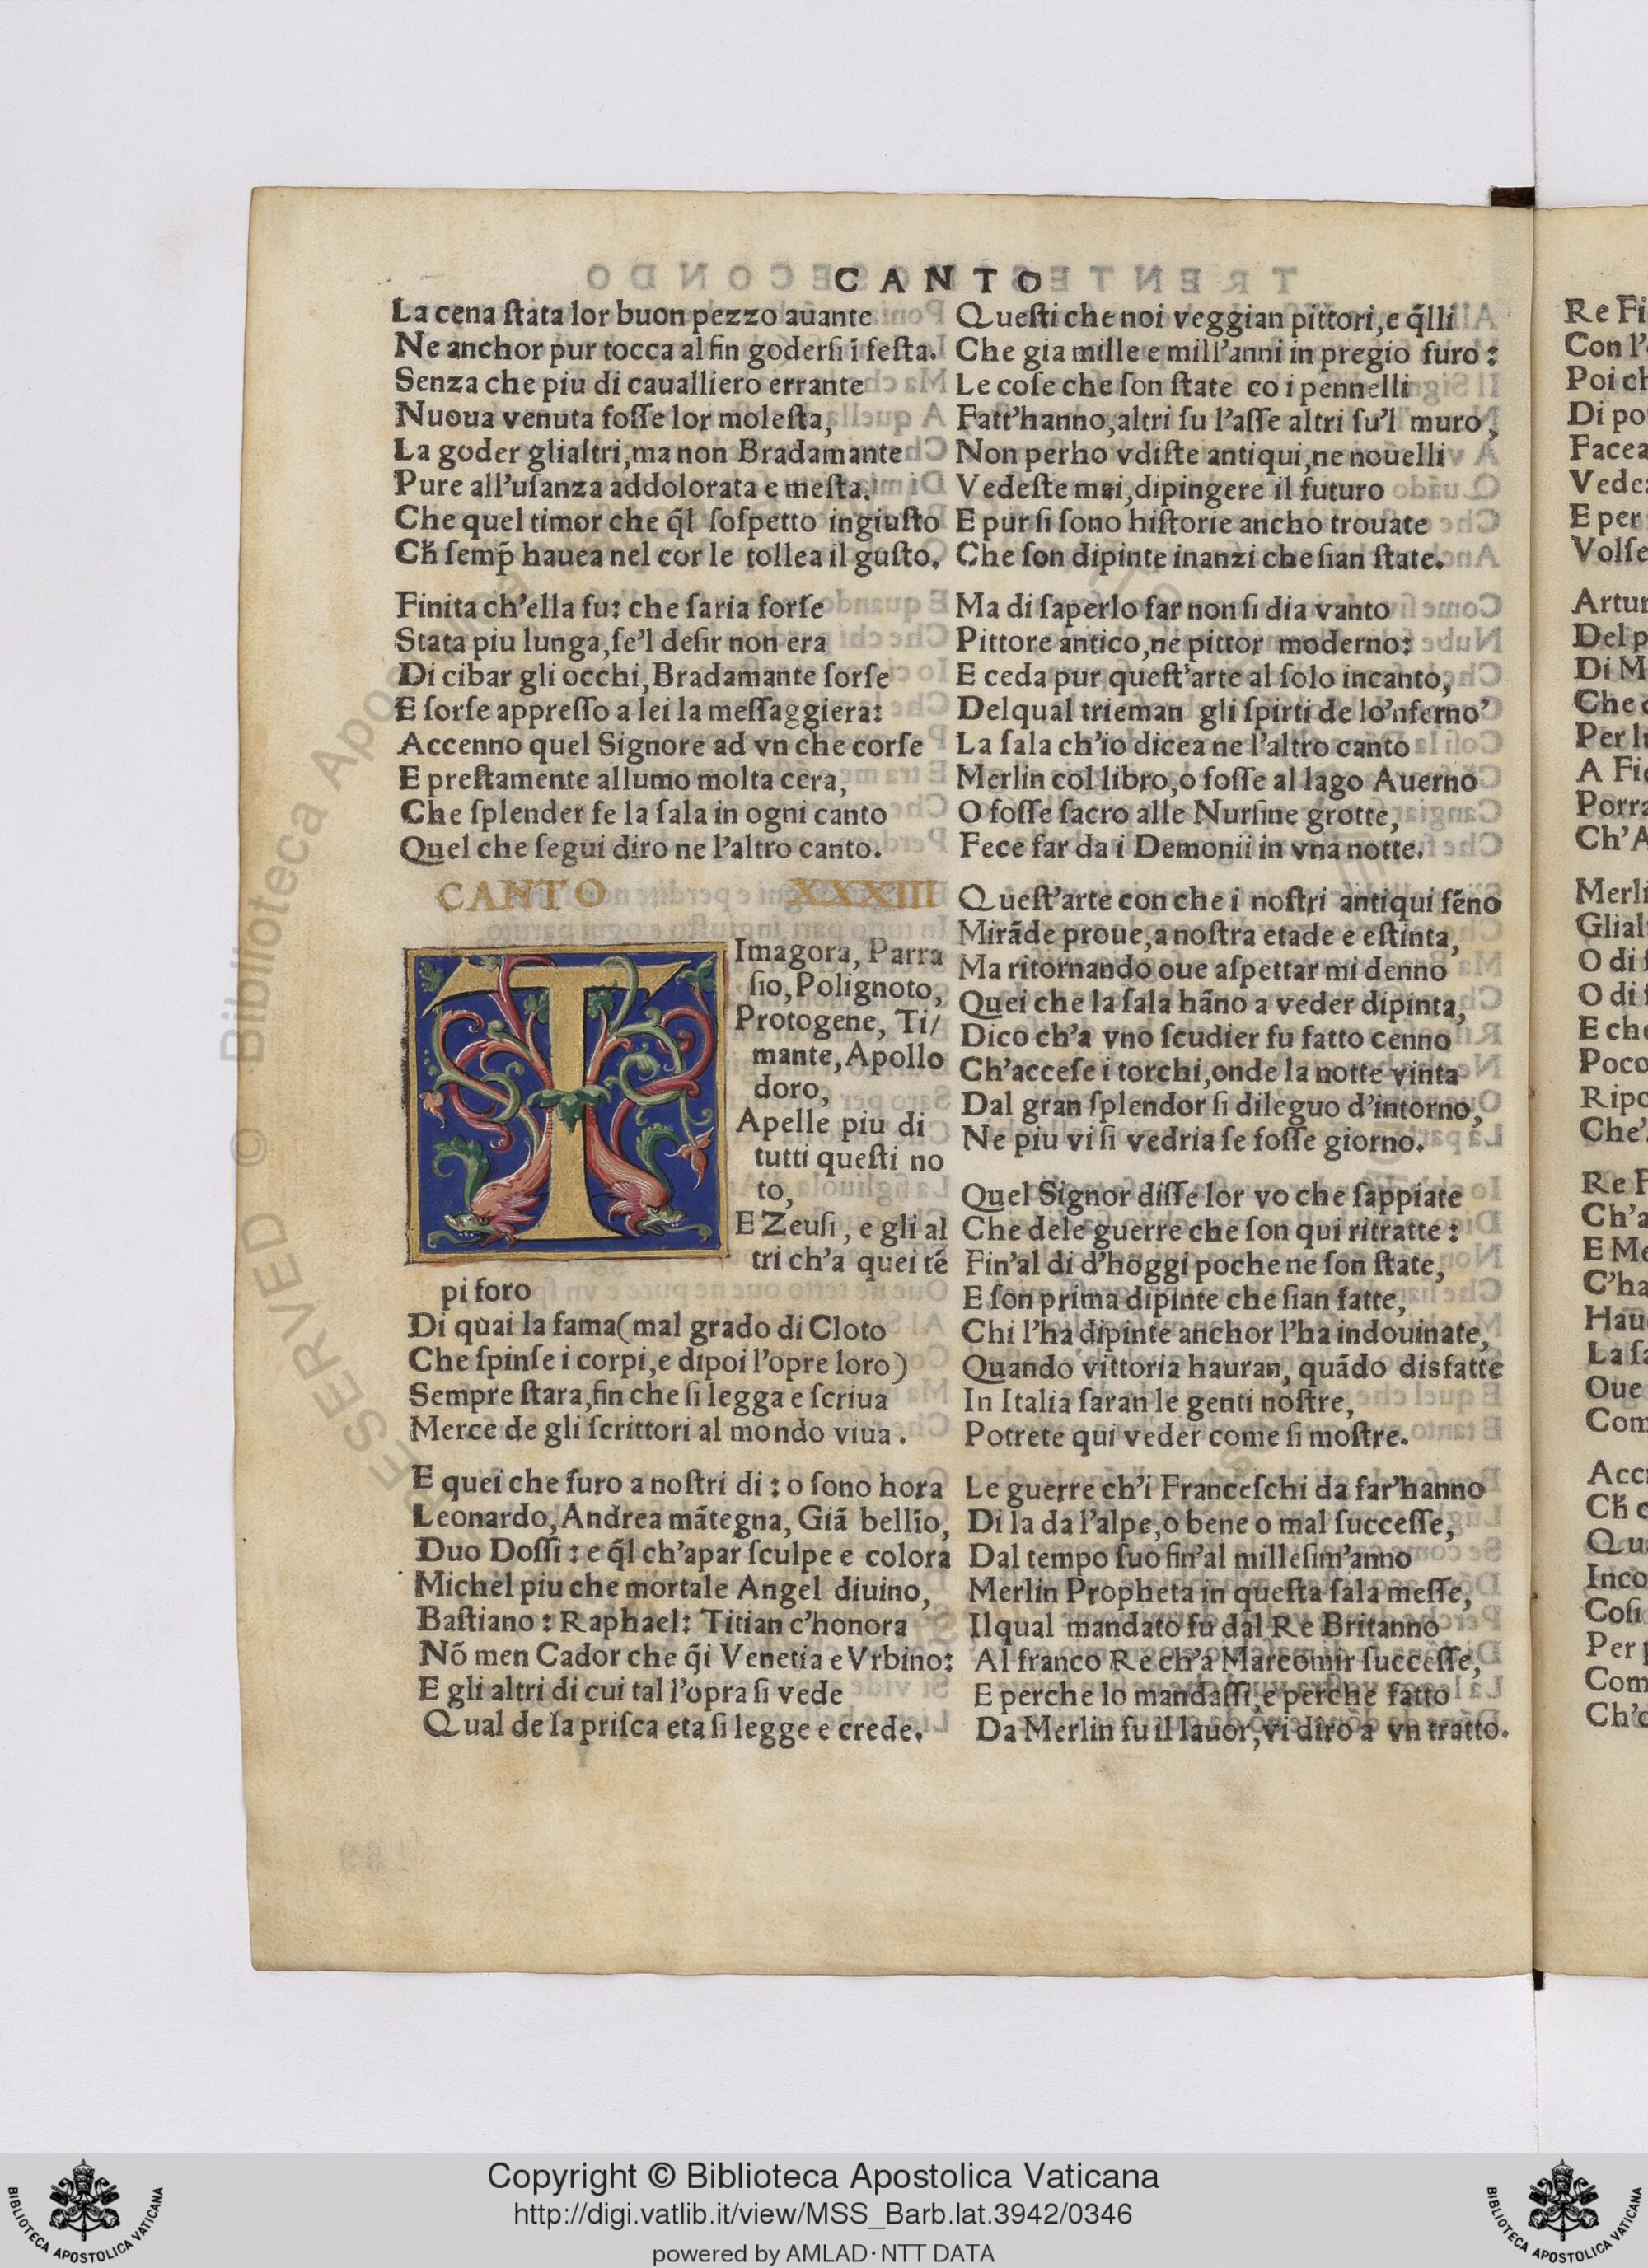 CANTO
La cena ſtata lor buon pezzo auante
Ne anchor pur tocca al fin goderſi ĩ feſta.
Senza che piu di caualliero errante
Nuoua venuta foſſe lor moleſta,
La goder glialtri, ma non Bradamante
Pure all'uſanza addolorata e meſta.
Che quel timor che q̃l ſoſpetto ingiuſto
Cħ ſemp̃ hauea nel cor le tollea il guſto.
Finita ch'ella fu: che faria forſe
Stata piu lunga, ſe'l deſir non era
Di cibar gli occhi, Bradamante ſorſe
E ſorſe appreſſo a lei la meſſaggiera:
Accenno quel Signore ad vn che corſe
E preſtamente allumo molta cera,
Che ſplender fe la ſala in ogni canto
Quel che ſegui diro ne l'altro canto.
CANTO XXXIII
TImagora, Parra
ſio, Polignoto,
Protogene, Ti/
mante, Apollo
doro,
Apelle piu di
tutti queſti no
to,
E Zeuſi, e gli al
tri ch'a quei tẽ
pi foro
Di quai la fama (mal grado di Cloto
Che ſpinſe i corpi, e dipoi l'opre loro)
Sempre ſtara, fin che ſi legga e ſcriua
Merce de gli ſcrittori al mondo viua.
E quei che furo a noſtri di: o ſono hora
Leonardo, Andrea mãtegna, Giã bellĩo,
Duo Doſſi: e q̃l ch'apar ſculpe e colora
Michel piu che mortale Angel diuino,
Baſtiano: Raphael: Titian c'honora
Nõ men Cador che q̃i Venetia e Vrbino:
E gli altri di cui tal l'opra ſi vede
Qual de la priſca eta ſi legge e crede.
Queſti che noi veggian pittori, e q̃lli
Che gia mille e mill'anni in pregio furo:
Le coſe che ſon ſtate co i pennelli
Fatt'hanno, altri ſu l'aſſe altri ſu'l muro,
Non perho vdiſte antiqui, ne nouelli
Vedeſte mai, dipingere il futuro
E pur ſi ſono hiſtorie ancho trouate
Che ſon dipinte inanzi che ſian ſtate.
Ma di ſaperlo far non ſi dia vanto
Pittore antico, ne pittor moderno:
E ceda pur queſt'arte al ſolo incanto,
Delqual trieman gli ſpirti de lo'nferno'
La ſala ch'io dicea ne l'altro canto
Merlin col libro, o foſſe al lago Auerno
O foſſe ſacro alle Nurſine grotte,
Fece far da i Demonii in vna notte.
Queſt'arte con che i noſtri antiqui fẽno
Mirãde proue, a noſtra etade e eſtinta,
Ma ritornando oue aſpettar mi denno
Quei che la ſala hãno a veder dipinta,
Dico ch'a vno ſcudier fu fatto cenno
Ch'acceſe i torchi, onde la notte vinta
Dal gran ſplendor ſi dileguo d'intorno,
Ne piu vi ſi vedria ſe foſſe giorno.
Quel Signor diſſe lor vo che ſappiate
Che dele guerre che ſon qui ritratte:
Fin'al di d'hoggi poche ne ſon ſtate,
E ſon prima dipinte che ſian fatte,
Chi l'ha dipinte anchor l'ha indouinate,
Quando vittoria hauran, quãdo disfatte
In Italia ſaran le genti noſtre,
Potrete qui veder come ſi moſtre.
Le guerre ch'i Franceſchi da far'hanno
Di la da l'alpe, o bene o mal ſucceſſe,
Dal tempo ſuo fin'al milleſim'anno
Merlin Propheta in queſta ſala meſſe,
Ilqual mandato fu dal Re Britanno
Al franco Re ch'a Marcomir ſucceſſe,
E perche lo mandaſſi, e perche fatto
Da Merlin fu il lauor, vi diro a vn tratto.
Re Fi
Con l'
Poi ch
Di po
Facea
Vede
E per
Volſe
Artur
Del p
Di M
Che
Per l
A Fi
Porra
Ch'A
Merli
Glial
O di
O di
E che
Poco
Ripo
Che'
Re F
Ch'a
E Me
C'ha
Hau
La ſa
Oue
Com
Acc
Cħ
Qu
Inco
Coſi
Per
Com
Ch'
© Biblioteca Apos
ESERVED
Copyright © Biblioteca Apostolica Vaticana
http://digi.vatlib.it/view/MSS_Barb.lat.3942/0346
powered by AMLAD·NTT DATA
BIBLIOTECA APOSTOLICA VATICANA
BIBLIOTECA APOSTOLICA VATICANA